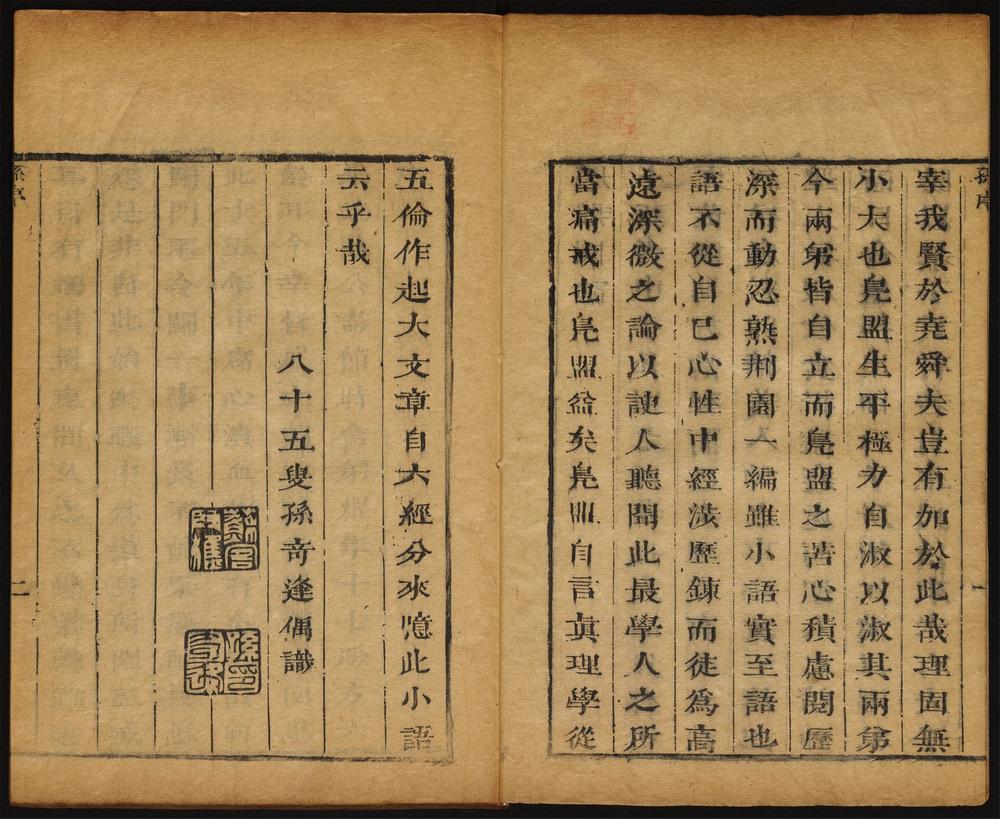 孫序
宰我賢於堯舜夫豈有加於此哉理固無
小大也鳧盟生平極力自淑以淑其兩弟
今兩弟皆自立而鳧盟之苦心積慮閱歷
深而動忍熟荆園一編雖小語實至語也
語不從自已心性中經濟歷鍊而徒為高
遠深微之論以諛人聽聞此最學人之所
當痛戒也鳧盟益矣鳧盟自言眞理學從
一
五倫作起大文章自六經分來噫此小語
云乎哉
八十五叟孫竒逢偶識
孫序
二